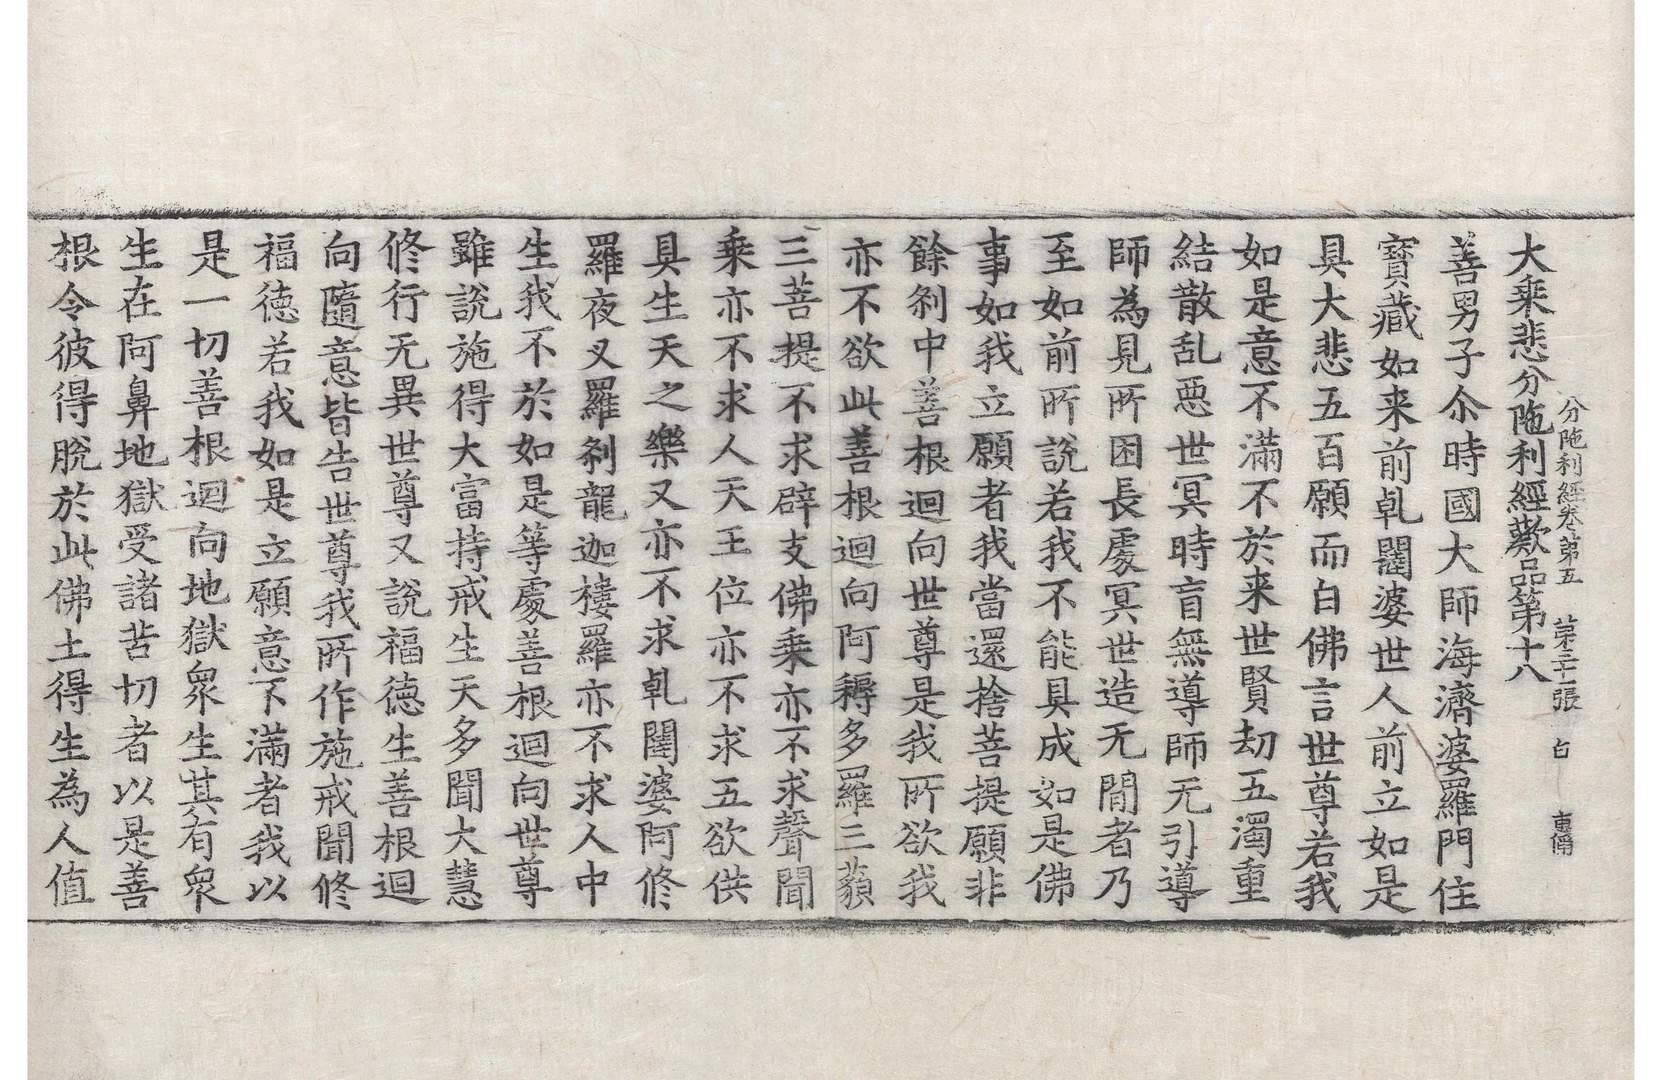 分陁利經卷第五　第二十一張　白
大乘悲分陁利經歎品第十八
善男子尒時國大師海濟婆羅門住
寶藏如来前乹闥婆世人前立如是
具大悲五百願而白佛言世尊若我
如是意不滿不於来世賢劫五濁重
結散乱惡世冥時盲無導師无引導
師為見所困長處冥世造无閒者乃
至如前所說若我不能具成如是佛
事如我立願者我當還捨菩提願非
餘剎中善根迴向世尊是我所欲我
亦不欲此善根迴向阿耨多羅三藐
三菩提不求辟支佛乘亦不求聲聞
乘亦不求人天王位亦不求五欲供
具生天之樂又亦不求乹闥婆阿修
羅夜叉羅剎龍迦樓羅亦不求人中
生我不於如是等處善根迴向世尊
雖說施得大富持戒生天多聞大慧
修行无異世尊又說福德生善根迴
向隨意皆告世尊我所作施戒聞修
福德若我如是立願意不滿者我以
是一切善根迴向地獄眾生其有眾
生在阿鼻地獄受諸苦切者以是善
根令彼得脫於此佛土得生為人值